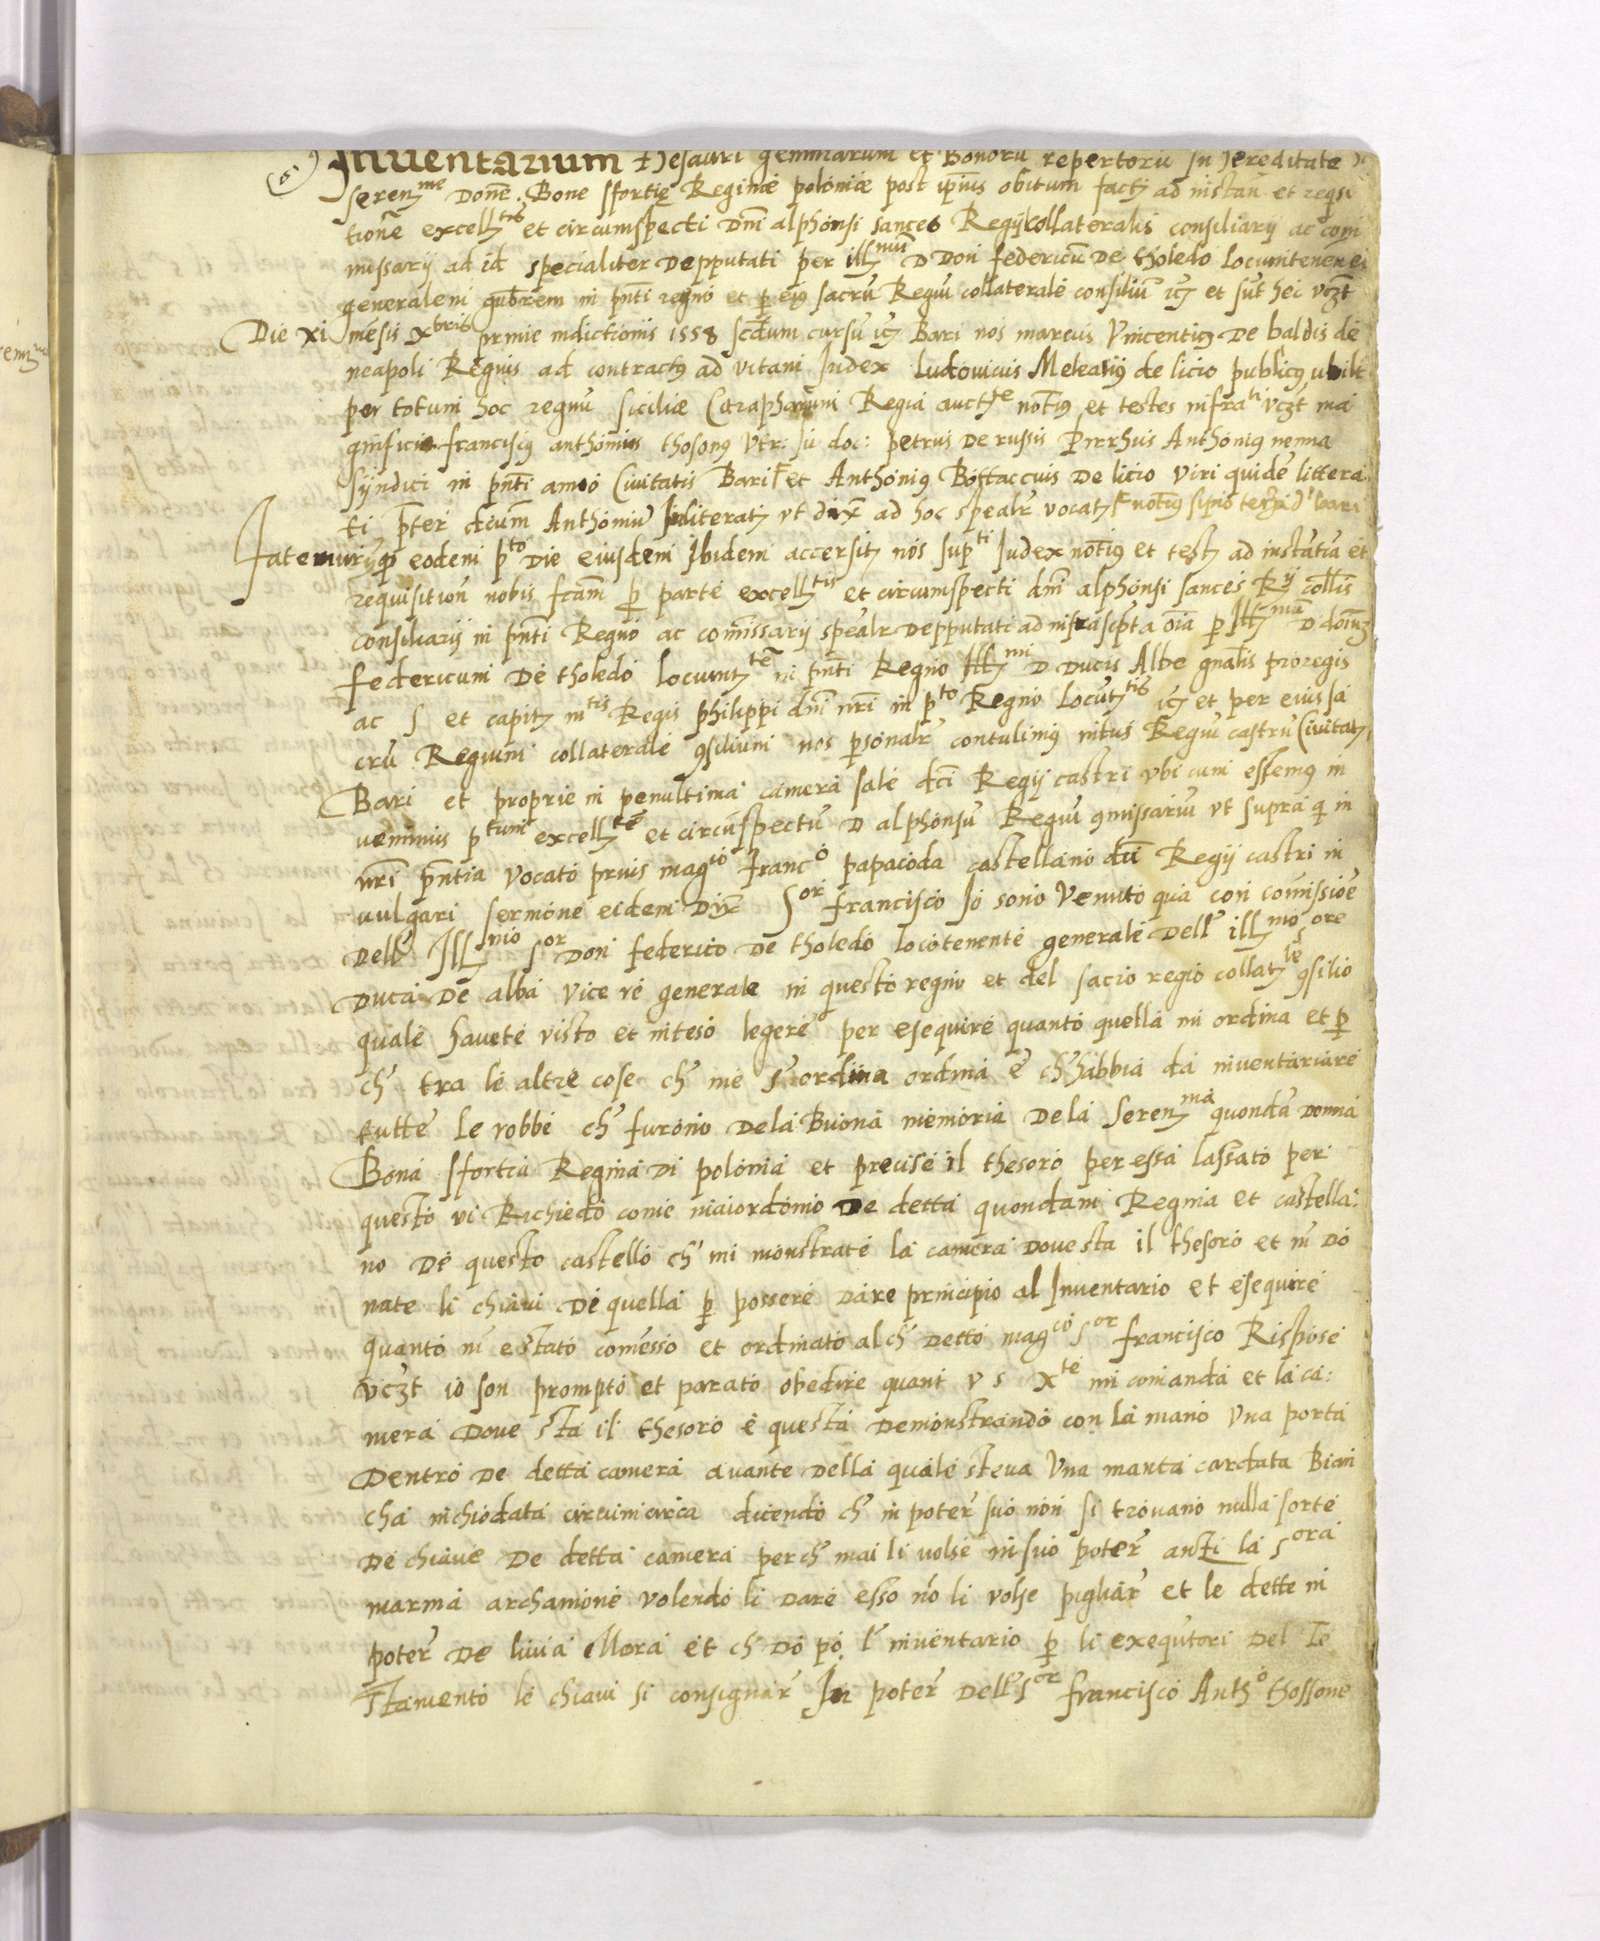 Inventarium thesauri gemmarum et Bonorū repertorū in hereditate
serenme Donē Bone sfortię Reginæ poloniæ post ipīus obitum fact ad instan et reqsi
tionē excelltis et circumspecti Dni alphonsi sances Regij collateralis consiliarij ac comi
missarij ad id specialiter Depputati per illmū D Don federicū De tholedo Locumtenen
generalem gubrem in pnti regno et p eius sacrū Regiū collaterale consiliū et sūt hec vczt
Die xi mēsis xbris prime indictionis 1558 scdum cursū Bari nos marcus Vincentius De baldis de
neapoli Regius ad contractus ad vitam Iudex Ludovicus Meleatius de licio publicus ubilt
per totum hoc regnū siciliæ Citrapharum Regia aucte notus et testes infrati vczt ma
gnifici franciscus anthonius thosonus vtr: iu doc: petrus De russis Pirrhus Anthonius nenna
sijndici in pnti anno Civitatis Bari et Anthonius Bottaccius De licio viri quidē littera
ti pter dcum Anthoniū Inliterat vt dixt ad hoc spealr vocat
fatemur q eodem pto Die eiusdem Ibidem accersit nos supti Iudex notus et test ad instātia et
requisitionē nobis fcam p parte excelltis et circumspecti dni alphonsi sances Rij collis
consiliarij in pnti Regno ac comissarij spealr Depputati ad infrascpta oīa p Illmū D doīnz
federicum De tholedo locumttē in pnti Regno Illmi D Ducis Albe gnalis proregis
ac S et capit mtis Regis philippi dni nri in pto Regno Locuttis et per eius sa
crū Regium collaterale gsilium nos psonalr contulimus intus Regiū castrū Civitat
Bari et proprie in penultima camera sale dci Regij castri vbi cum essemus in
venimus ptum excelltē et circūspectū D alphonsū Regiū gmissariū vt supra q in
nri pntia vocato prius magco Franco papacoda castellano dci Regij castri in
vulgari sermone eidem Dixt Sor francisco Io sono Venuto qua con comissiōe
Dell Illmo Sor Don federico De tholedo locotenente generale Dell' illmo Sore
Duca De alba vice re generale in questo regno et del sacro regio collatle gsilio
quale havete visto et inteso legere per esequire quanto quella mi ordina et p
ch' tra le altre cose ch' me s' ordina ordina è ch' habbia da inventariare
tutte le robbe ch' furono Dela Buona memoria De la Serenma quondā Donna
Bona sfortia Regina Di polonia et precise il thesoro per essa lassato per
questo vi Richiedo come maiordomo De detta quondam Regina et castella:
no De questo castello ch' mi monstrate la camera Dove sta il thesoro et m' Do
nate li chiavi De quella p possere Dare principio al Inventario et esequire
quanto m' e stato comesso et ordinato al ch' Detto magco Sor francisco Rispose
vczt io son prompto et parato obedire quant v s xte mi comanda et la ca:
mera Dove sta il thesoro è questa Demonstrando con la mano Vna porta
Dentro De detta camera avante Della quale steva Vna manta cardata Bian
cha inchiodata circumcirca dicendo ch' in poter suo non si trovano nulla sorte
De chiave De detta camera perch' mai li volse in suo poter anti la Sora
marma archamone volendo li Dare esso nō li volse pigliar et le dette in
poter De livia et ch Do po l' inventario p li exequtori Del Te
stamento le chiavi si consignar In poter Dell Sor francisco Antho thossone